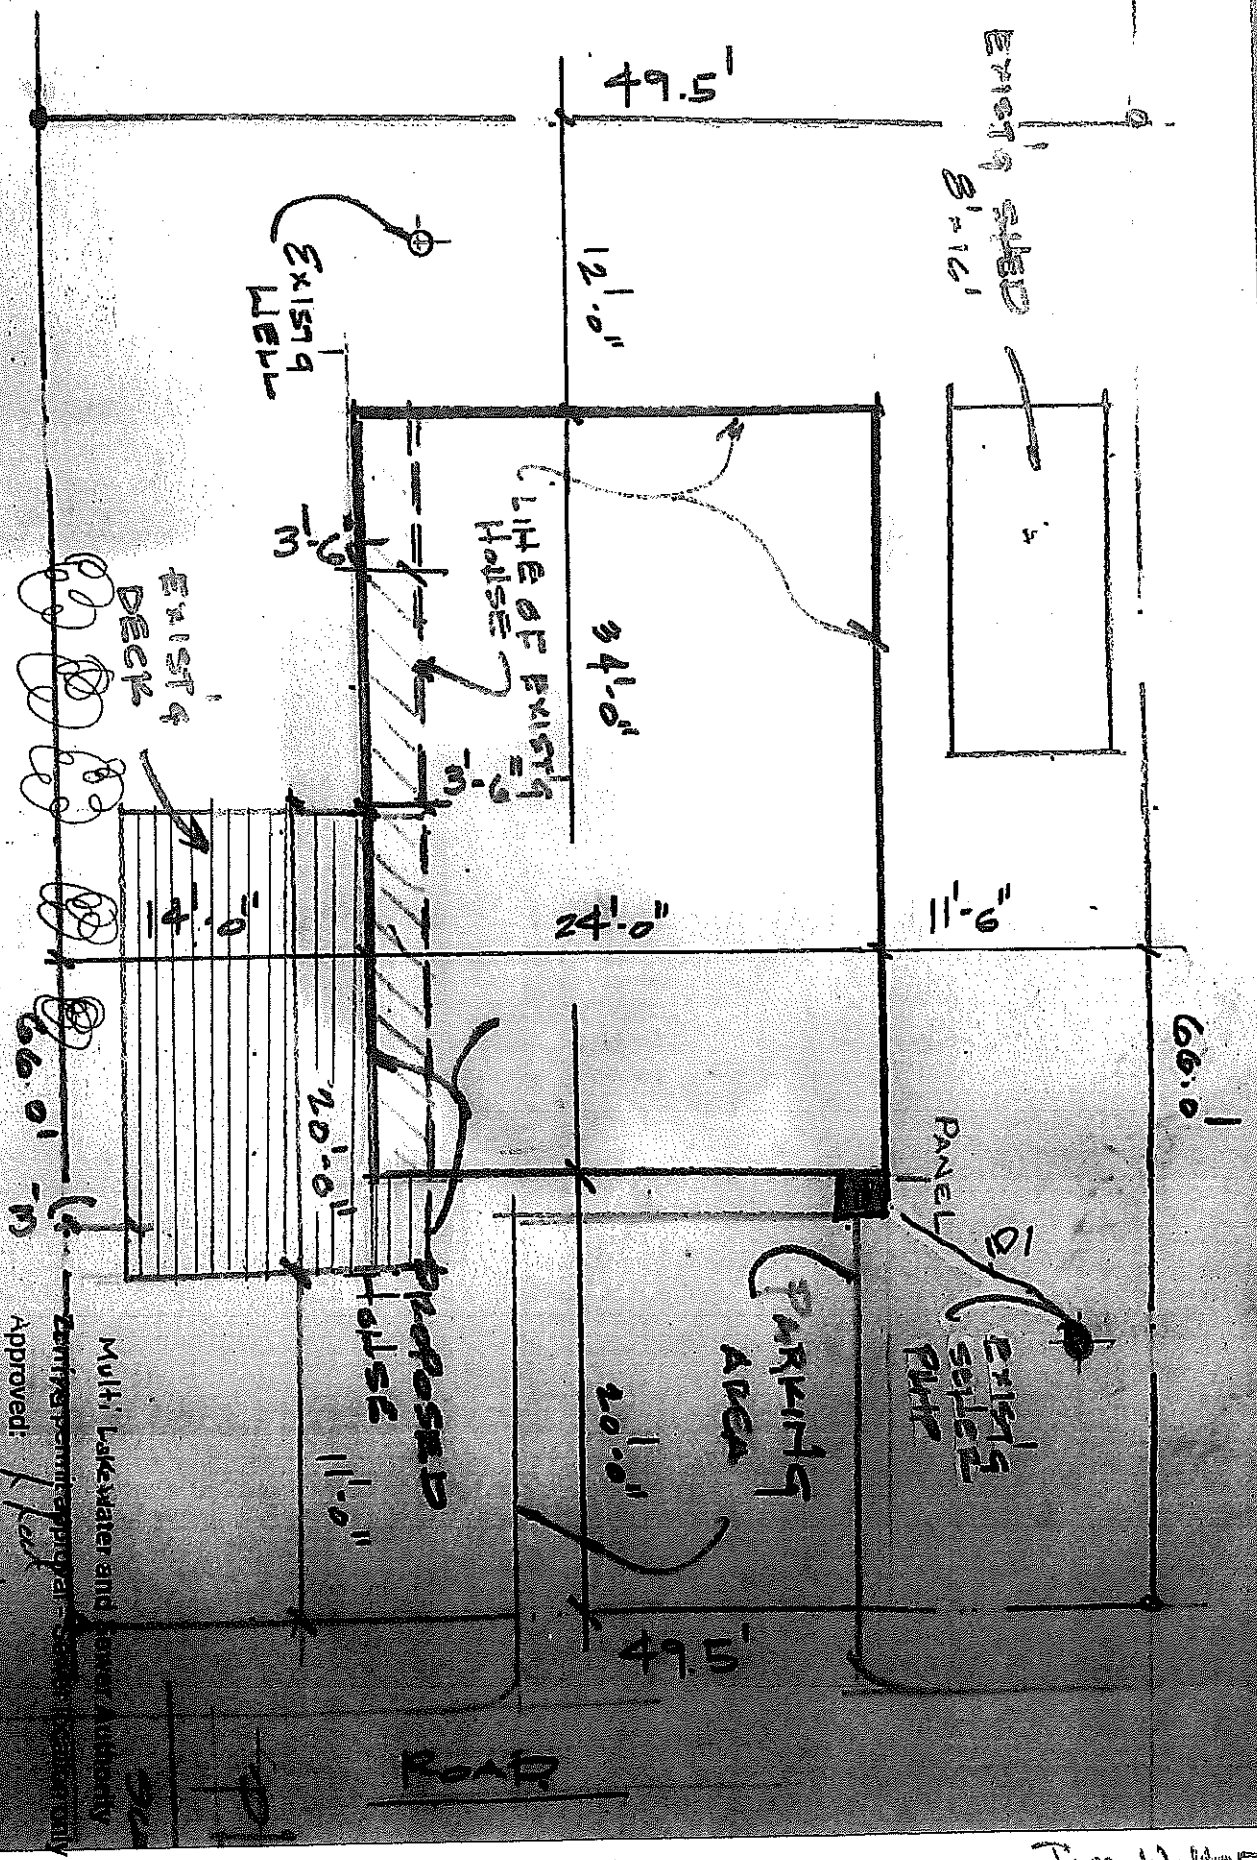 49.5'
EXIST'G SHED
8'-16'
12'-0"
EXIST'G
WELL
3'-6"
LINE OF EXIST'G
HOUSE
34'-0"
3'-6"
EXIST'G
DECK
14'-0"
24'-0"
11'-6"
66.0'
66.0'
20'-0"
PANEL
10'
EXIST'G
SEWER
PUMP
PARKING
AREA
20'-0"
PROPOSED
HOUSE
11'-0"
49.5'
ROAD
Multi Lakewater and Sewer Authority
Zoning permit approval - sewer location only
Approved: